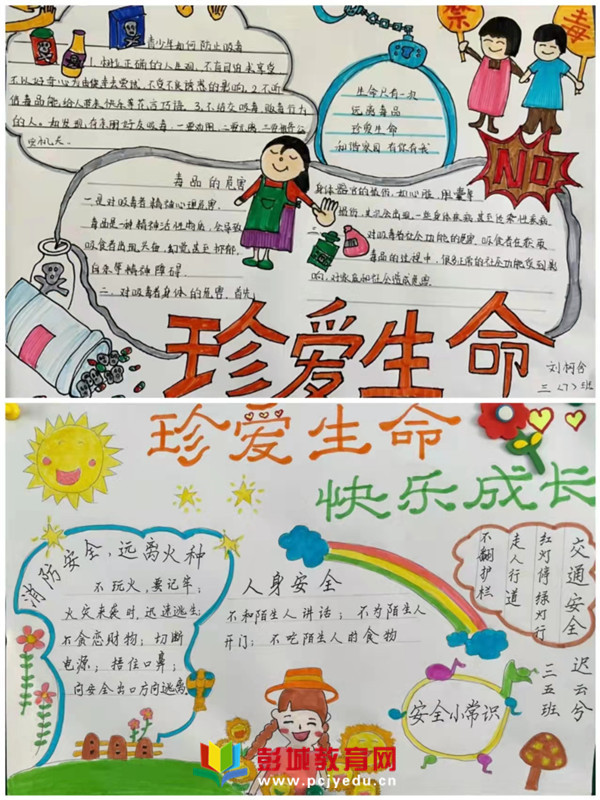 青少年如何防止吸毒
1.树立正确的人生观,不盲目追求享受
不以好奇心为由侵害去尝试,不受不良诱惑的影响。2.不听
信毒品能给人带来快乐等花言巧语。3.不结交吸毒贩毒行为
的人。如发现有亲朋好友吸毒,一要劝阻,二要
生命只有一次
远离毒品
珍爱生命
和谐家园 有你有我
禁毒
NO
毒品的危害
一.是对吸毒者精神心理危害.
毒品是一种精神活性物质,会导致
吸食者出现失眠、幻觉甚至抑郁、
自杀等精神障碍
二.对吸毒者身体的危害,首先
身体器官的损伤,如心脏
损伤,其次会出现一些身体疾病甚至传染性疾病
对吸毒者社会功能的危害,吸食者在获取
毒品的过程中,很多正常的社会功能受到影
响,对家庭和社会造成危害.
珍爱生命
三(7)班
珍爱生命
快乐成长
消防安全,远离火种
不玩火,要记牢;
火灾来袭时,迅速逃生;
不贪恋财物;切断
电源;捂住口鼻;
向安全出口方向逃离
人身安全
不和陌生人讲话;不为陌生人
开门;不吃陌生人的食物
交通安全
红灯停绿灯行
走人行道
不翻护栏
安全小常识
迟云兮
三五班
彭城教育网
www.pcjyedu.cn